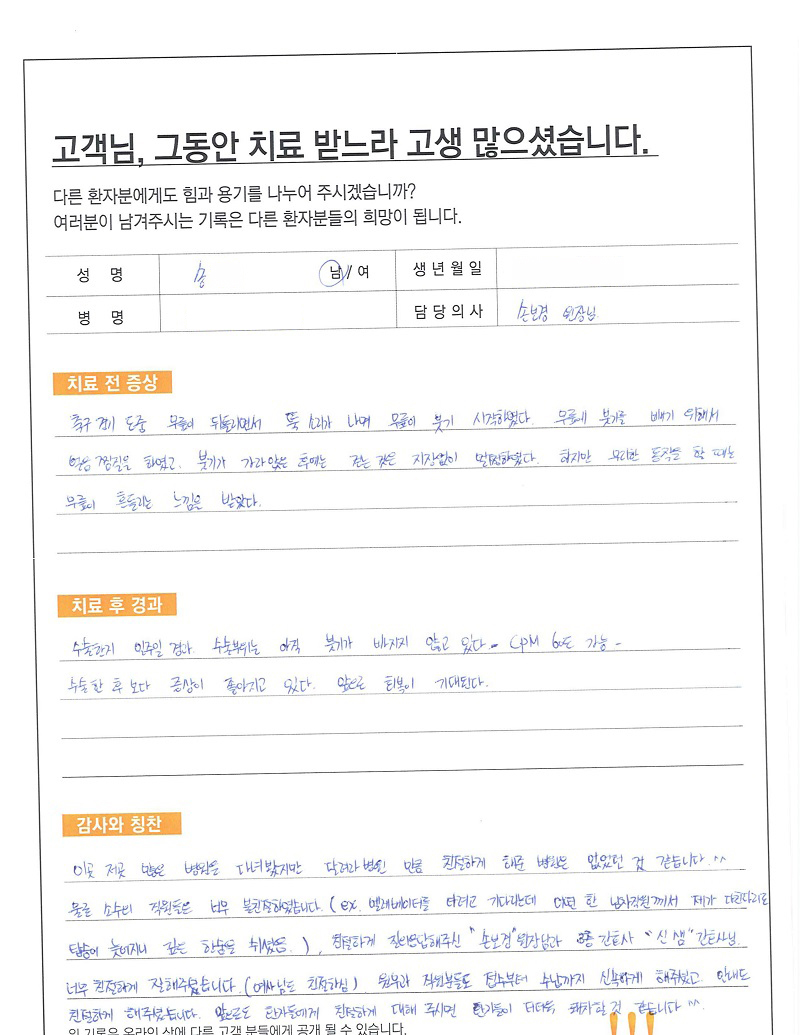 고객님, 그동안 치료 받느라 고생 많으셨습니다.
다른 환자분에게도 힘과 용기를 나누어 주시겠습니까?
여러분이 남겨주시는 기록은 다른 환자분들의 희망이 됩니다.
성 명 송 남 / 여 생년월일
병 명 담당의사 손보경 원장님
치료 전 증상
축구 경기 도중 무릎이 뒤틀리면서 뚝 소리가 나며 무릎이 붓기 시작하였다. 무릎에 붓기를 빼기 위해서
얼음찜질을 하였고, 붓기가 가라앉은 후에는 걷는 것은 지장없이 멀쩡하였다. 하지만 무리한 동작을 할 때는
무릎이 흔들리는 느낌을 받았다.
치료 후 경과
수술한지 일주일 경과 수술부위는 아직 붓기가 빠지지 않고 있다. - CPM 60도 가능 -
수술한 후 보다 증상이 좋아지고 있다. 앞으로 회복이 기대된다.
감사와 칭찬
이곳 저곳 많은 병원을 다녀봤지만 달려라병원 만큼 친절하게 해준 병원은 없었던 것 같습니다.^^
물론 소수의 직원들은 너무 불친절하였습니다. (ex. 엘레베이터를 타려고 기다리는데 다면 한 남자직원께서 제가 다친다리로
탑승이 늦어지니 깊은 한숨을 쉬셨음.), 친절하게 질의응답해주신 "손보경"원장님과 간호사 "신 샘" 간호사님.
너무 친절하게 잘해주셨습니다. (여사님도 친절하심) 원무과 직원분들도 접수부터 수납까지 신속하게 해주셨고 안내도
친절하게 해주셨습니다. 앞으로도 환자들에게 친절하게 대해 주시면 환자들이 더더욱 쾌차할 것 같습니다 ^^.
이 기록은 온라인 상에 다른 고객 분들에게 공개 될 수 있습니다.